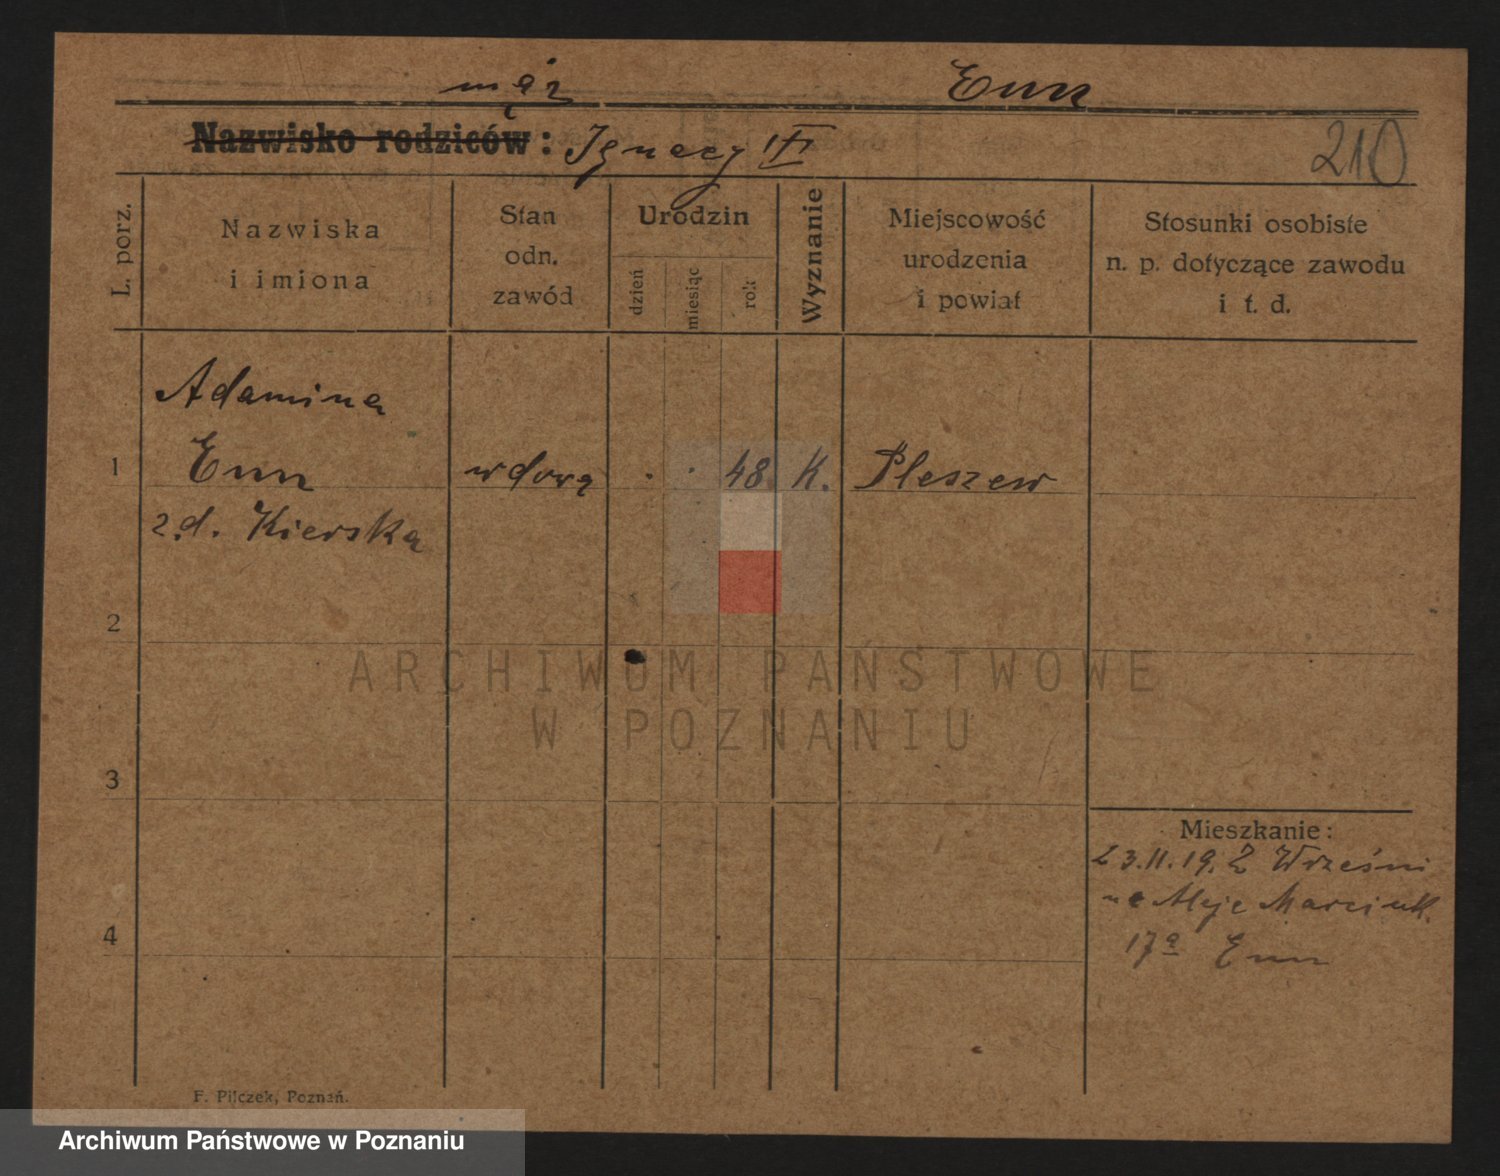 mąż Enn
Nazwisko rodziców: Ignacy †
210
L. porz.
Nazwiska
i imiona
Stan
odn.
zawód
Urodzin
dzień
miesiąc
rok
Wyznanie
Miejscowość
urodzenia
i powiat
Stosunki osobiste
n. p. dotyczące zawodu
i t. d.
Adamina
1 Enn wdową . . 48. K. Pleszew
z.d. Kierska
2
ARCHIWUM PAŃSTWOWE
W POZNANIU
3
Mieszkanie:
23.11.19. Z Wrześni
na Aleje Marcink.
4
17a Enn
F. Pilczek, Poznań.
Archiwum Państwowe w Poznaniu